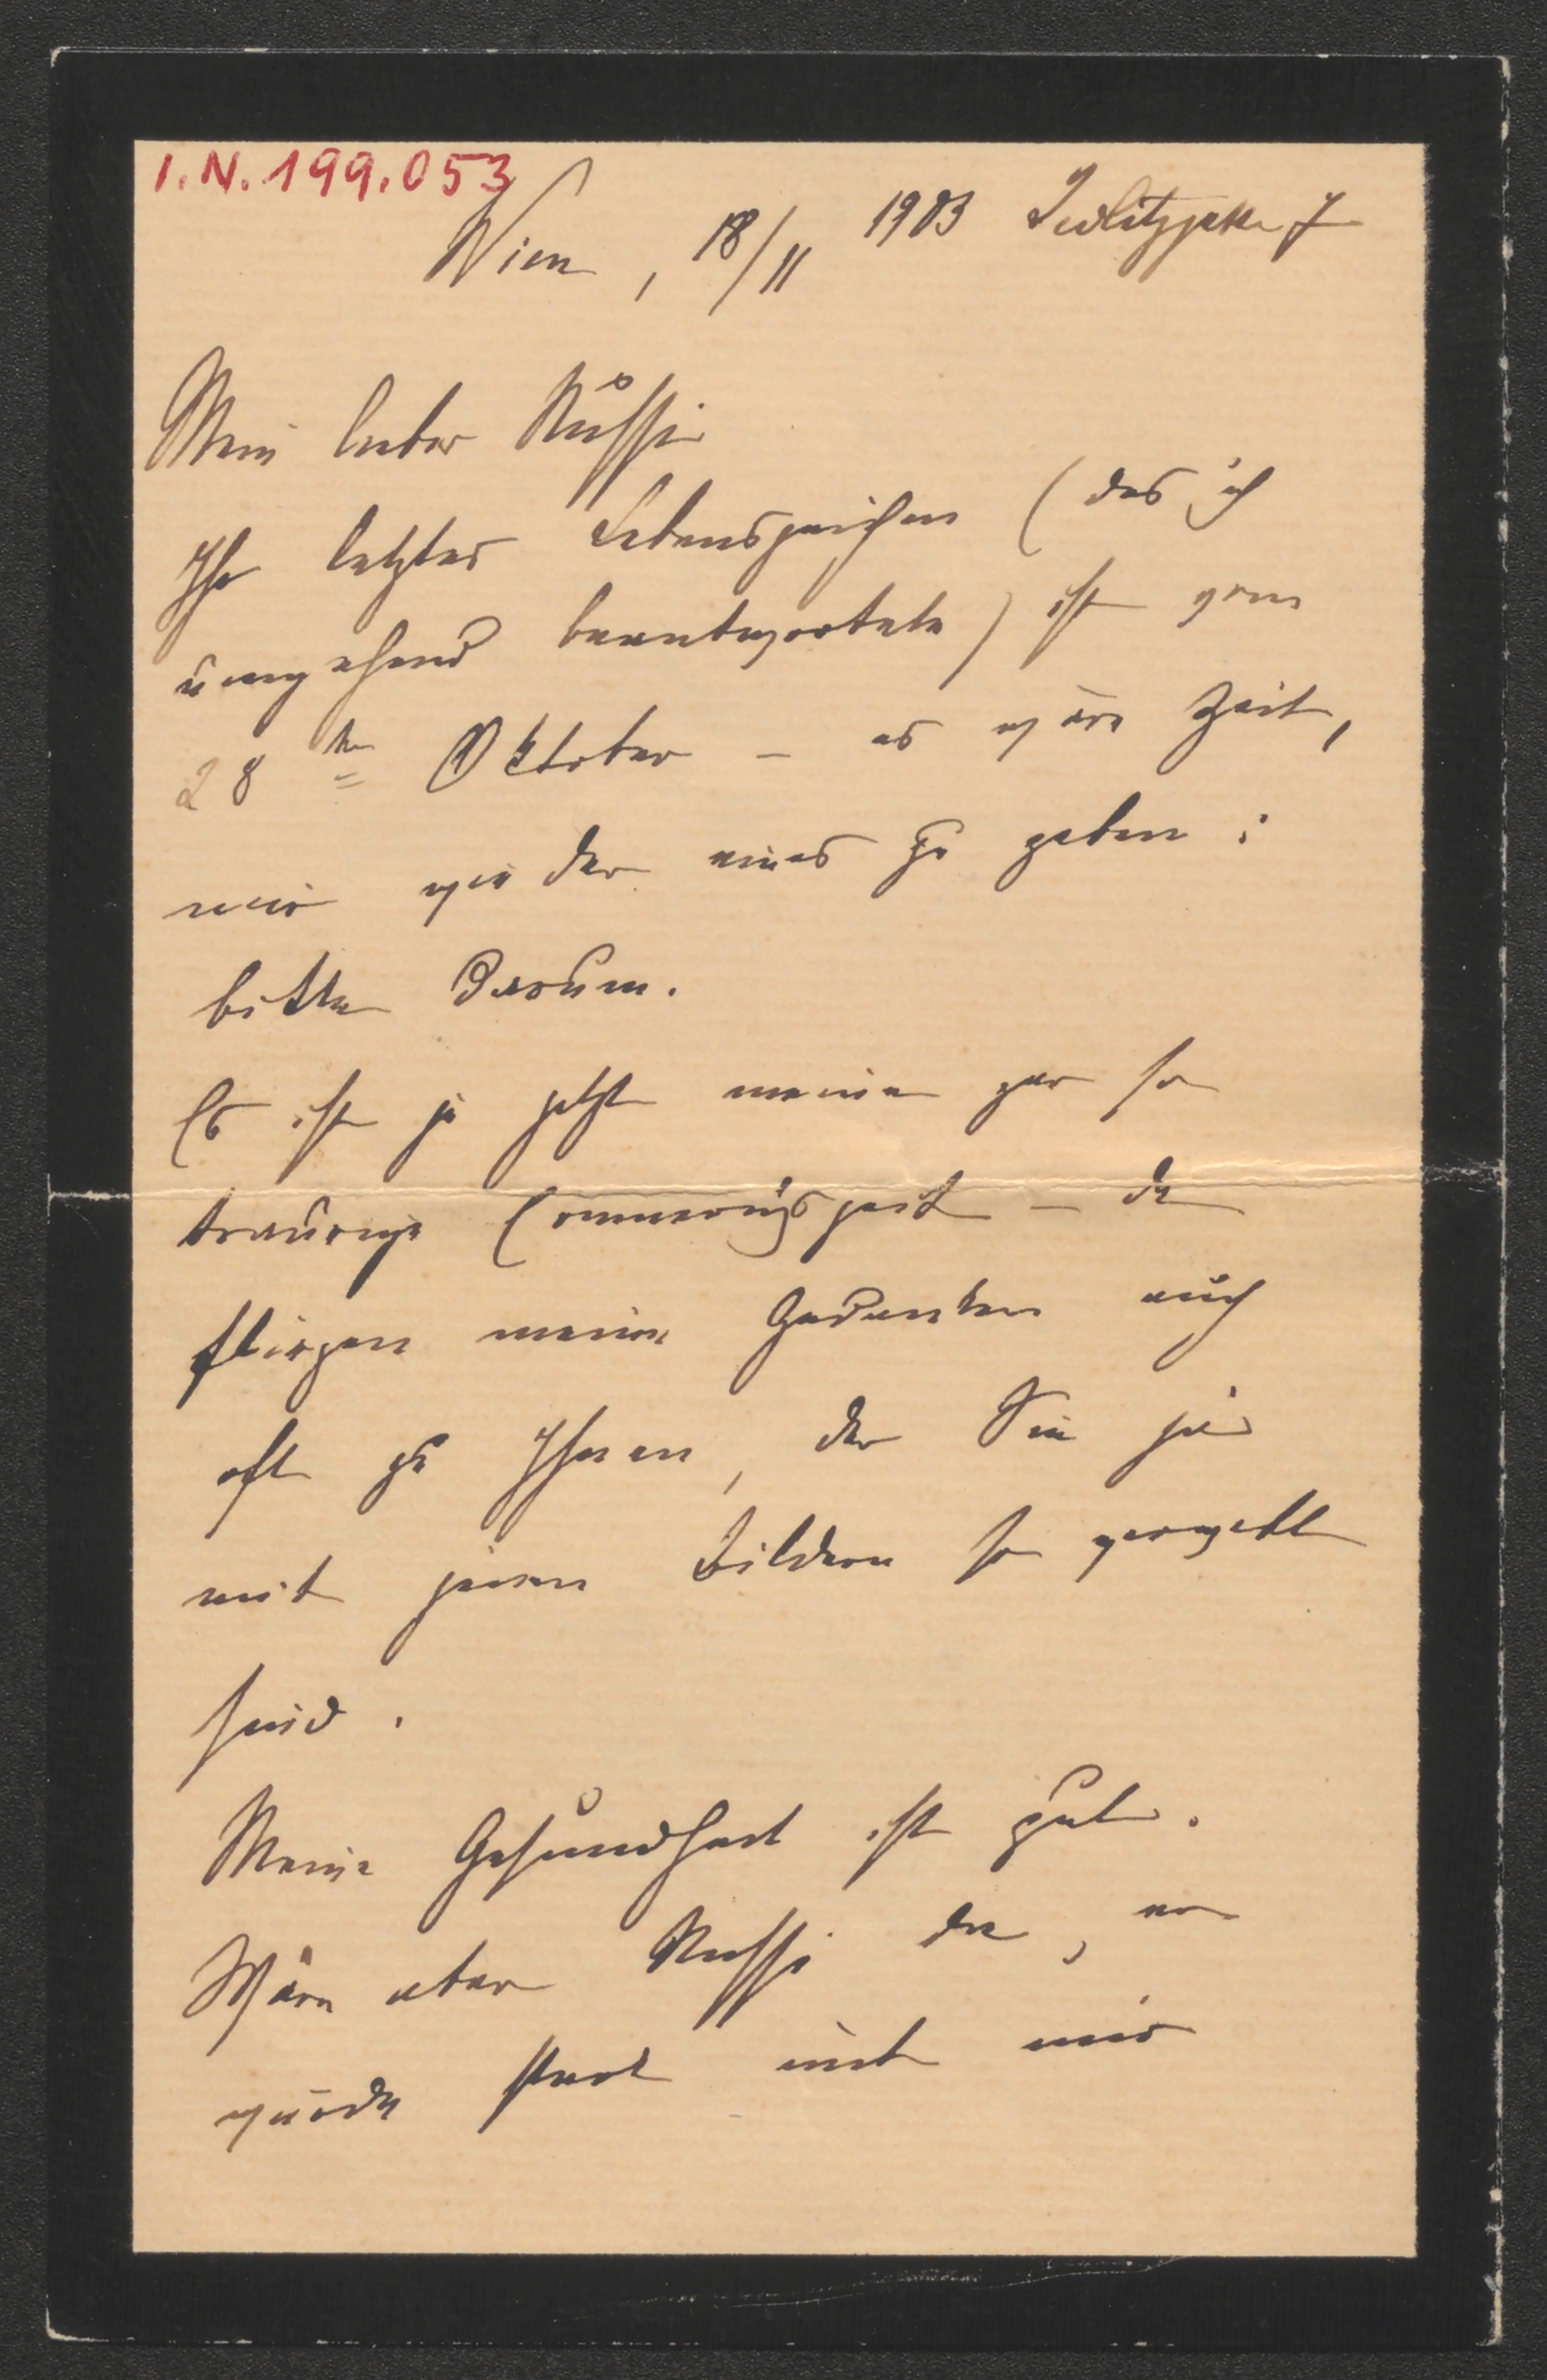 I.N. 199.053
Wien, 18/11 1903 Seilitzgasse 7
Mein lieber Nussi
Ihr letztes Lebenszeichen (das ich
umgehend beantwortete) ist vom
28ten Oktober – es wäre Zeit,
mir wieder eines zu geben:
bitte darum.
Es ist ja jetzt meine gar so
traurige Erinnerungszeit – da
fliegen meine Gedanken auch
oft zu Ihnen, der Sie ja
mit jenen Bildern so verwebt
sind.
Meine Gesundheit ist gut.
Wäre aber Nussi da, er
würde stark mit mir